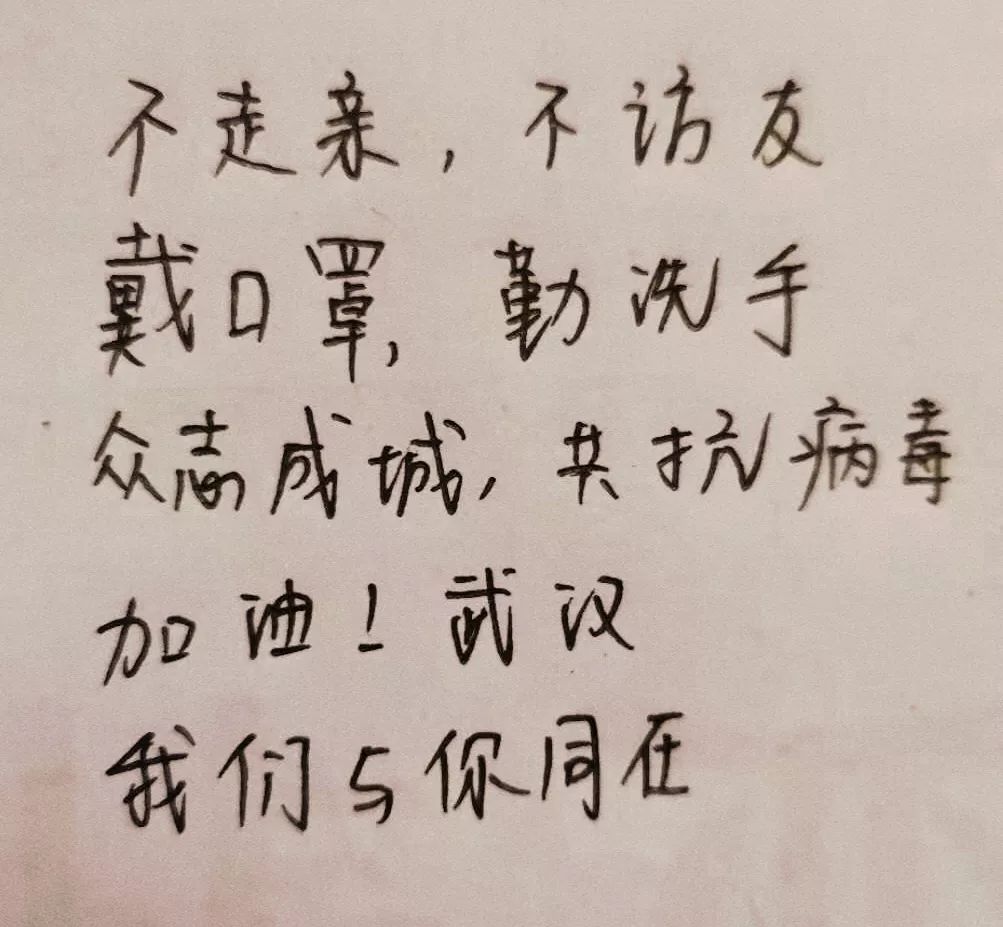 不走亲，不访友
戴口罩，勤洗手
众志成城，共抗病毒
加油！武汉
我们与你同在